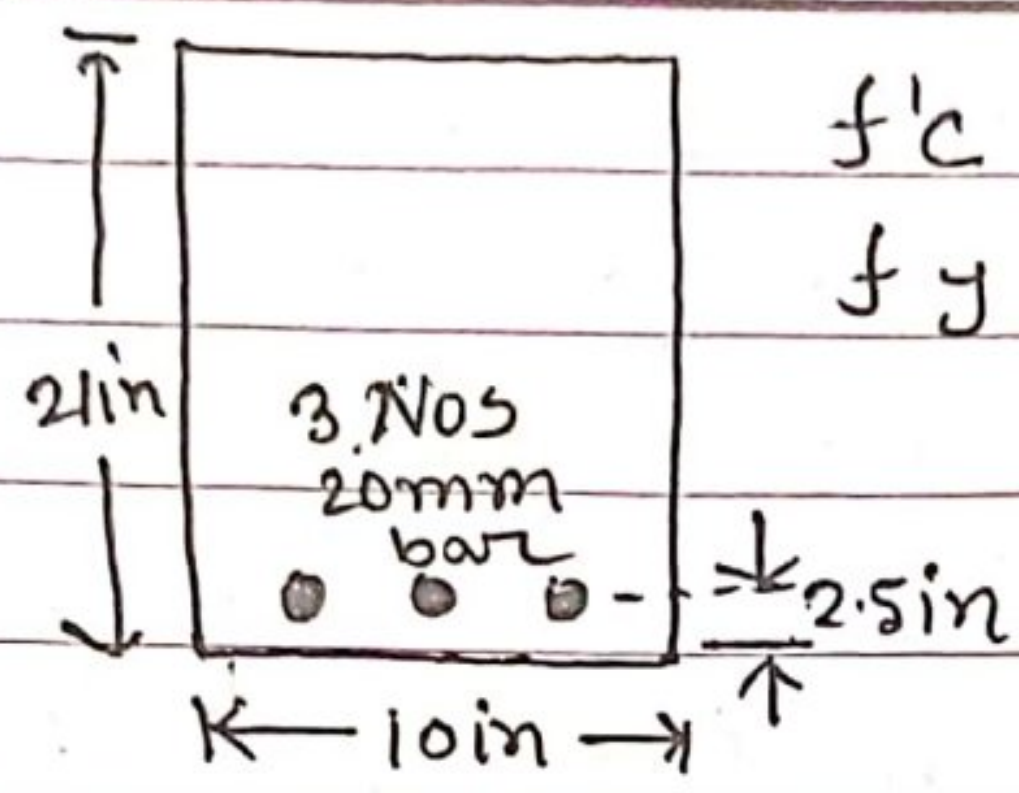 f'c
fy
21in
3.Nos
20mm
bar
2.5in
10in